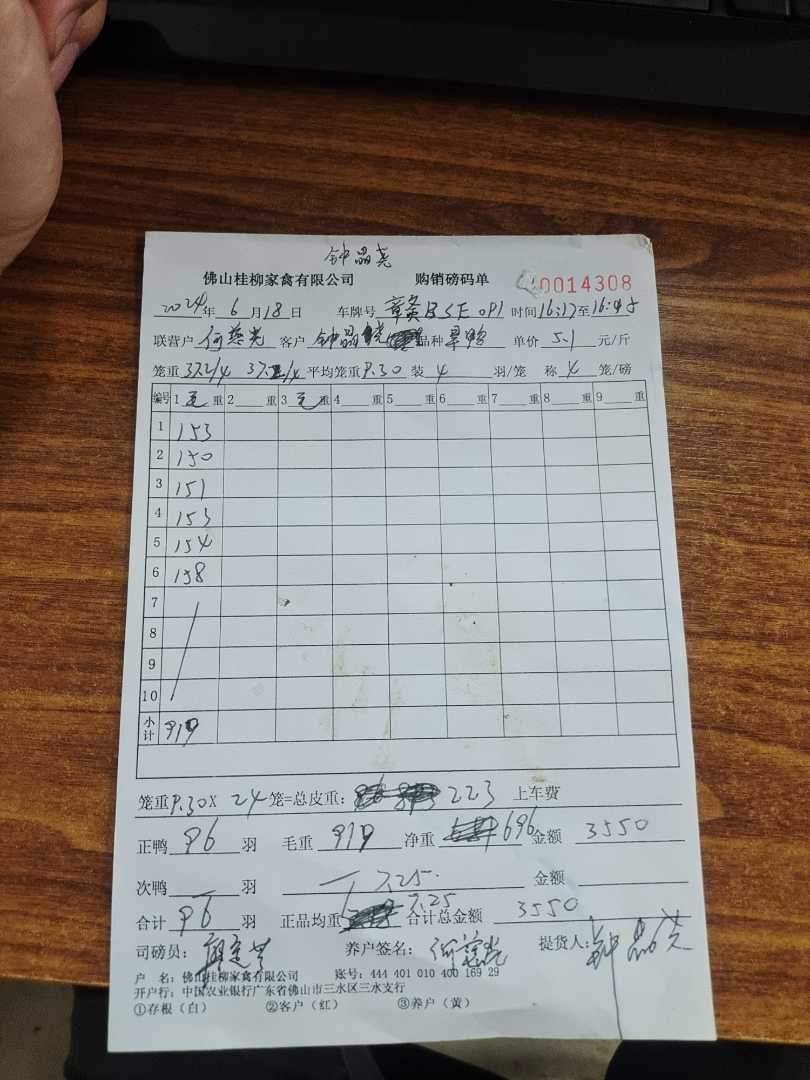 钟晶尧
佛山桂柳家禽有限公司 购销磅码单 0014308
2024年6月18日 车牌号 时间16:17至16:45
联营户 何慈光 客户 钟晶 品种 单价 5.1 元/斤
笼重 37.2/4 37.2/4 平均笼重 9.30 装 4 羽/笼 称 4 笼/磅
编号 1 毛 重 2 重 3 毛 重 4 重 5 重 6 重 7 重 8 重 9 重
1 153
2 150
3 151
4 153
5 154
6 158
7
8
9
10
小计 919
笼重 9.30X 24 笼=总皮重: 223 上车费
正鸭 96 羽 毛重 919 净重 696 金额 3550
次鸭 羽 7.25 金额
合计 96 羽 正品均重 7.25 合计总金额 3550
司磅员: 养户签名: 何慈光 提货人: 钟晶尧
户 名: 佛山桂柳家禽有限公司 账号: 444 401 010 400 169 29
开户行: 中国农业银行广东省佛山市三水区三水支行
①存根(白) ②客户(红) ③养户(黄)